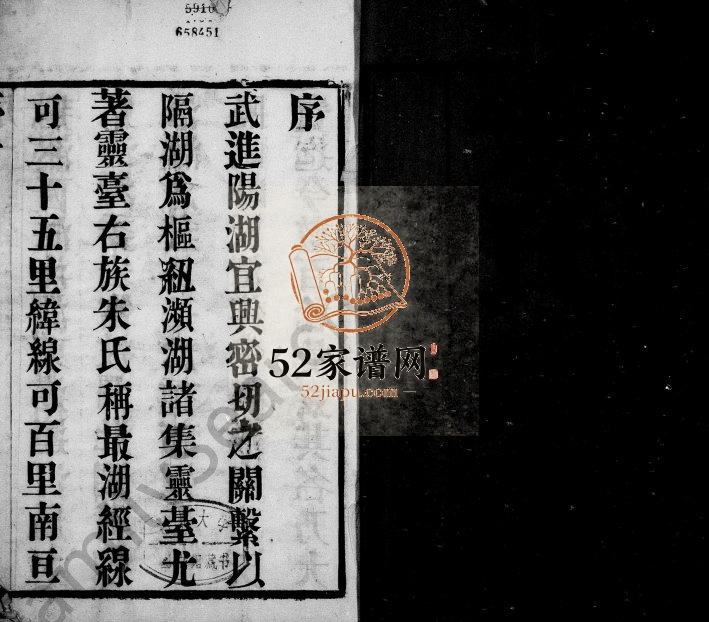 5910
658451
序
武進陽湖宜興密切之關繫以
隔湖爲樞紐瀕湖諸集靈臺尤
著靈臺右族朱氏稱最湖經線
可三十五里緯線可百里南亘
52家谱网
52jiapu.com